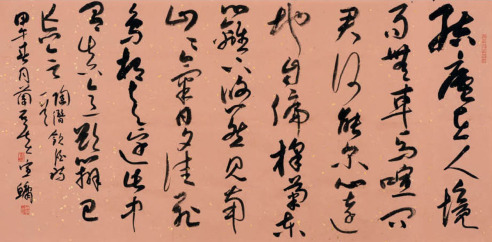 結廬在人境
而無車馬喧問
君何能尔心遠
地自偏採菊東
籬下悠然見南
山山氣日夕佳飛
鳥相與還此中
有真意欲辨已
忘言
陶潛飲酒詩
一首
甲午春月蘭